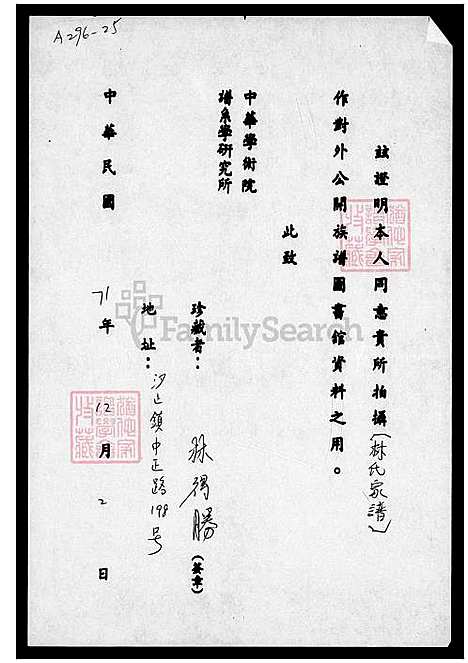 A296-25
茲證明本人同意貴所拍攝(林氏家譜)
作對外公開族譜圖書館資料之用。
此致
中華學術院
譜系學研究所
珍藏者：林得勝(簽章)
地址：汐止鎮中正路198号
中華民國71年12月2日
FamilySearch